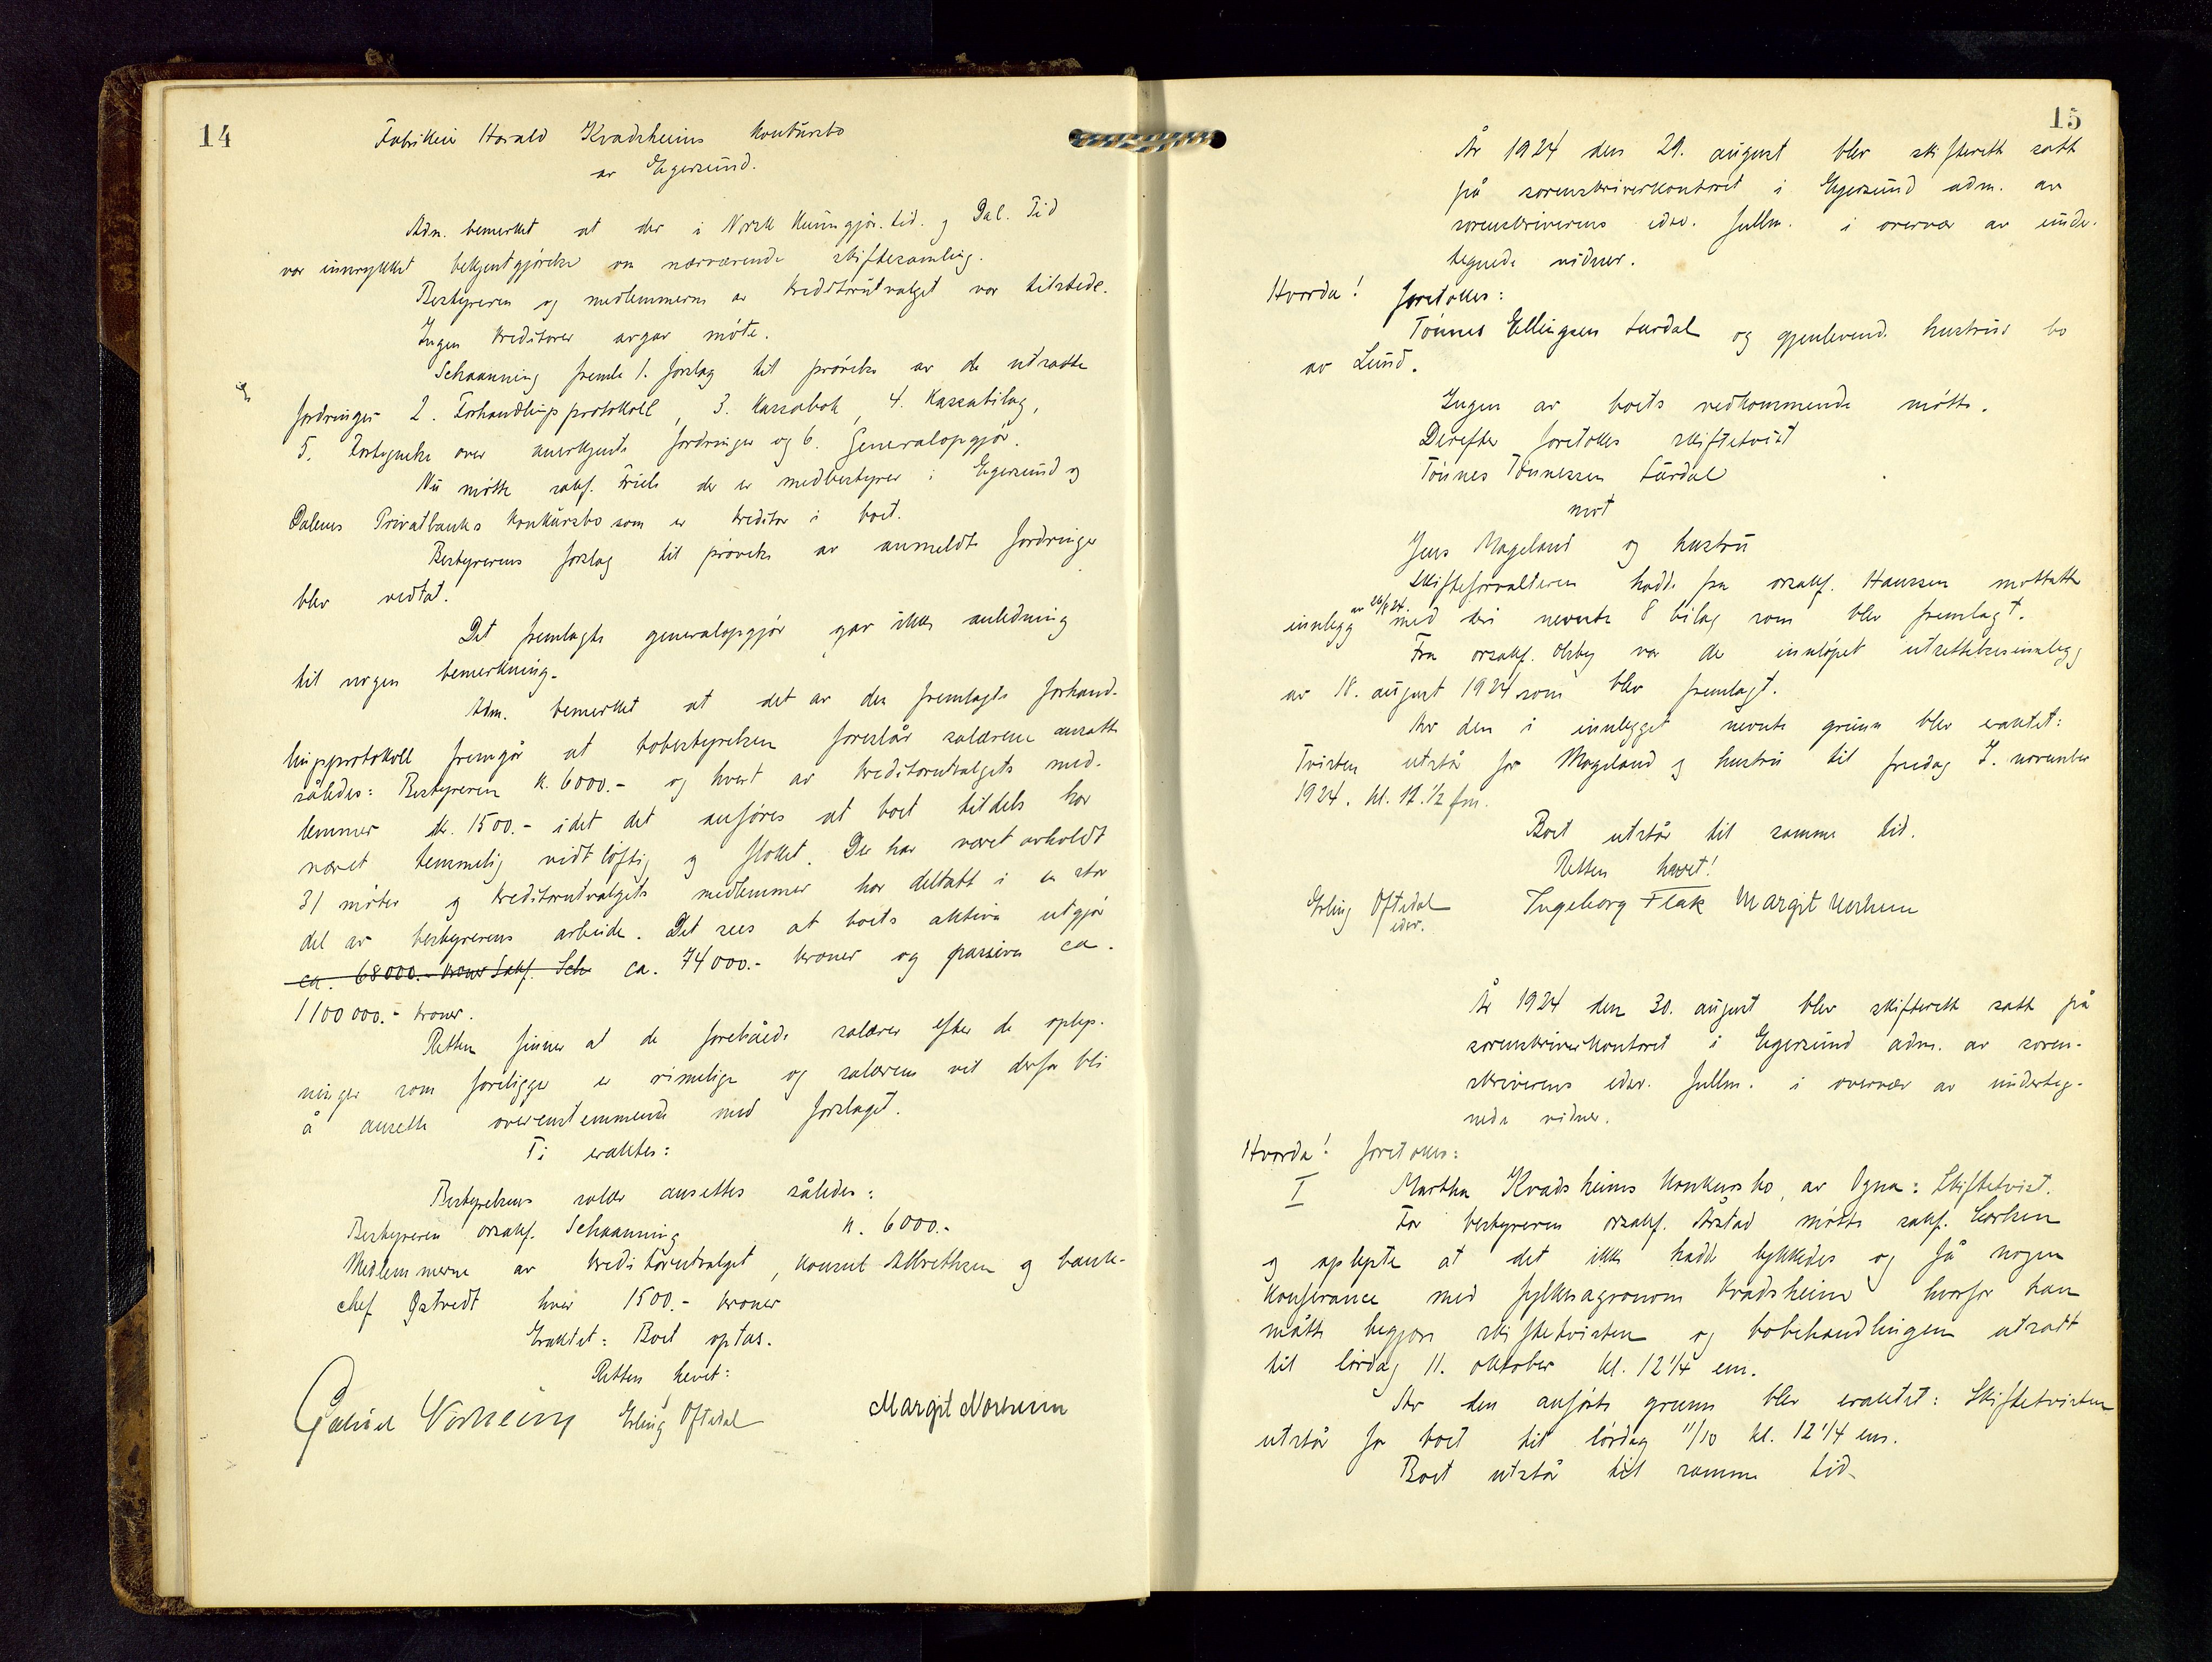 14
Fabrikeier Harald Kvadsheims konkursbo
av Egersund.
Adm. bemerket at der i Norsk Kunngjør. tid. og Dal. Tid
var innrykket bekjentgjørelse om nærværende skiftesamling.
Bestyreren og medlemmerne av kreditorutvalget var tilstede.
Ingen kreditorer avgav møte.
Schaanning fremla 1. forslag til prøvelse av de utsatte
fordringer 2. Forhandlingsprotokoll, 3. Kassabok, 4. Kassabilag,
5. Fortegnelse over anerkjente fordringer og 6. Generalopgjør.
Nu møtte sakf. Friele der er medbestyrer i Egersund og
Dalenes Privatbanks konkursbo som er kreditor i boet.
Bestyrerens forslag til prøvelse av anmeldte fordringer
blev vedtat.
Det fremlagte generalopgjør gav ikke anledning
til nogen bemerkning.
Adm. bemerket at det av den fremlagte forhand-
lingsprotokoll fremgår at bobestyrelsen foreslår salærene ansatte
således: Bestyreren k. 6000.- og hvert av kreditorutvalgets med-
lemmer kr. 1500.- idet det anføres at boet tildels har
været temmelig vidtløftig og floket. Der har været avholdt
31 møter og kreditorutvalgets medlemmer har deltatt i en stor
del av bestyrerens arbeide. Det sees at boets aktiva utgjør
ca. 68000.- kroner Sakf. Sch ca. 74000.- kroner og passiva ca.
1100000.- kroner.
Retten finner at de foreslåede salærer efter de oplys-
ninger som foreligger er rimelige og salærene vil derfor bli
å ansette overenstemmende med forslaget.
Ti eraktes:
Bestyrelsens salær ansettes således:
Bestyreren orsakf. Schaanning k. 6000.-
Medlemmerne av kreditorutvalget, konsul Albrethsen og bank-
chef Østvedt hver 1500.- kroner
Eraktet: Boet optas.
Retten hevet:
Gabriel Norheim Erling Oftedal Margit Norheim
15
År 1924 den 29. august blev skifterett satt
på sorenskriverkontoret i Egersund adm. av
sorenskriverens edsv. fullm. i overvær av under-
tegnede vidner.
Hvorda! foretokes:
Tønnes Ellingsen Surdal og gjenlevende hustrus bo
av Lund.
Ingen av boets vedkommende møtte.
Derefter foretokes skiftetvist
Tønnes Tønnessen Surdal
mot
Jens Mageland og hustru
Skifteforvalteren hadde fra orsakf. Hanssen mottatt
av 26/8 24.
innlegg med deri nevnte 8 bilag som blev fremlagt.
Fra orsakf. Olsby var der innløpet utsettelsesinnlegg
av 18. august 1924 som blev fremlagt.
Av den i innlegget nevnte grunn blev eraktet:
Tvisten utstår for Mageland og hustru til fredag 7. november
1924. kl. 11.1/2 fm.
Boet utstår til samme tid.
Retten hævet!
Erling Oftedal Ingeborg Flak Margit Norheim
edsv.
År 1924 den 30. august blev skifterett satt på
sorenskriverkontoret i Egersund adm. av soren-
skriverens edsv. fullm. i overvær av underteg-
nede vidner.
Hvorda! foretokes:
I Martha Kvadsheims konkursbo, av Ogna: Skiftetvist.
For bestyreren orsakf. Årstad møtte sakf. Carlsen
og oplyste at det ikke hadde lykkedes og få nogen
konferance med fylkesagronom Kvadsheim hvorfor han
måtte begjære skiftetvisten og bobehandlingen utsatt
til lørdag 11. oktober kl. 12 1/4 em.
Av den anførte grunn blev eraktet: Skiftetvisten
utstår for boet til lørdag 11/10 kl. 12 1/4 em.
Boet utstår til samme tid.